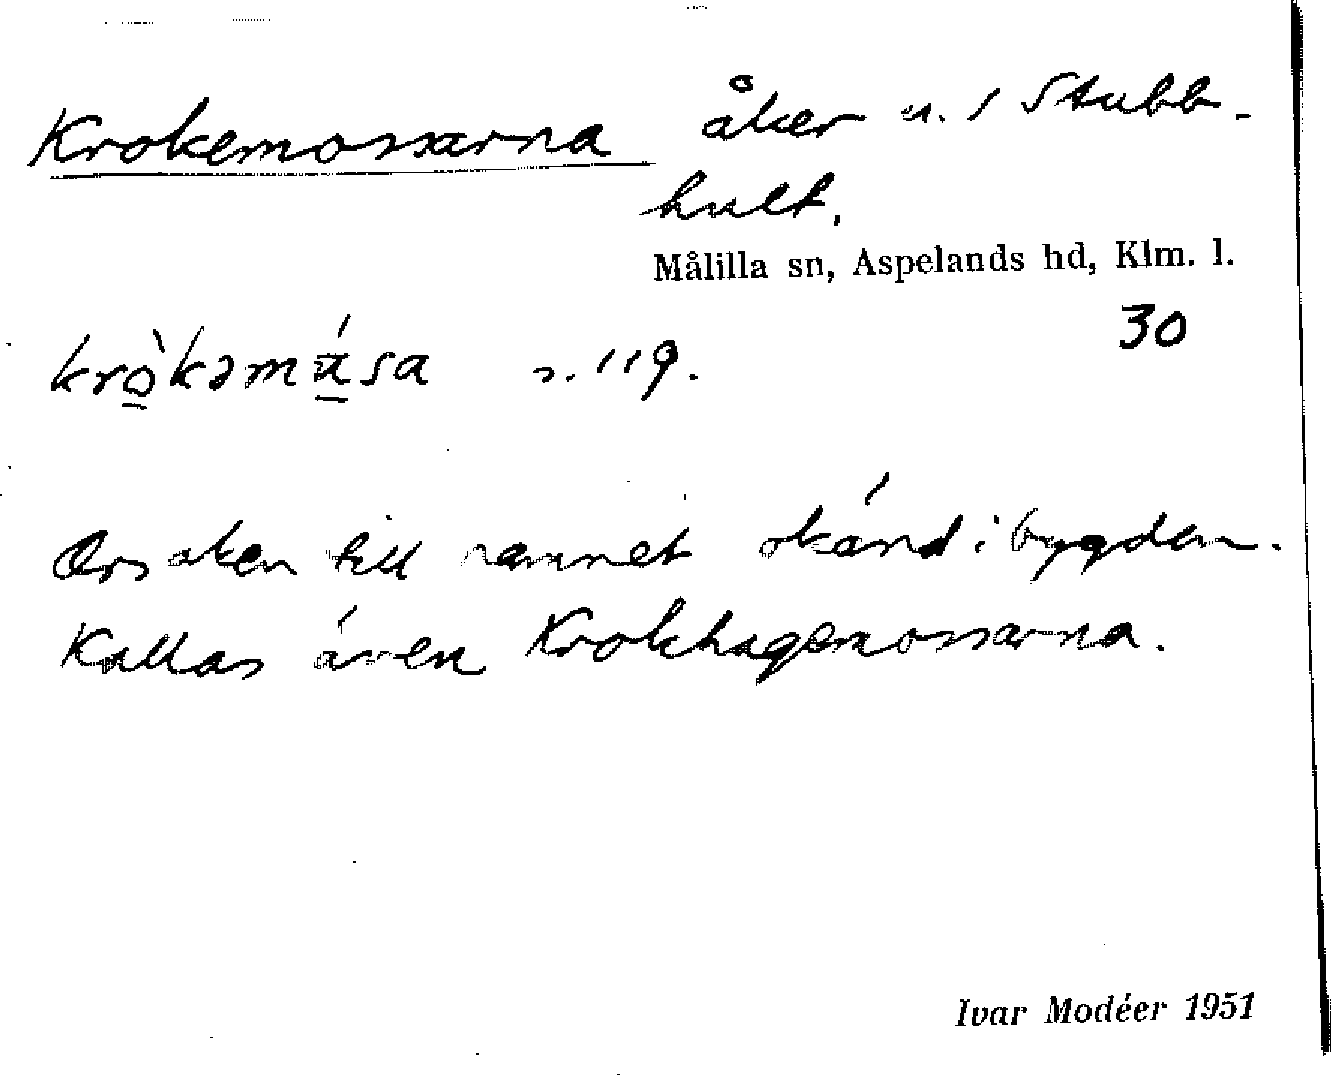 Krokemossarna åker u. / Stubb-
hult.
Målilla sn, Aspelands hd, Klm. l.
30
s. 119.
Orsaken till namnet okänd i bygden.
Kallas även Krokhagemossarna.
Ivar Modéer 1951